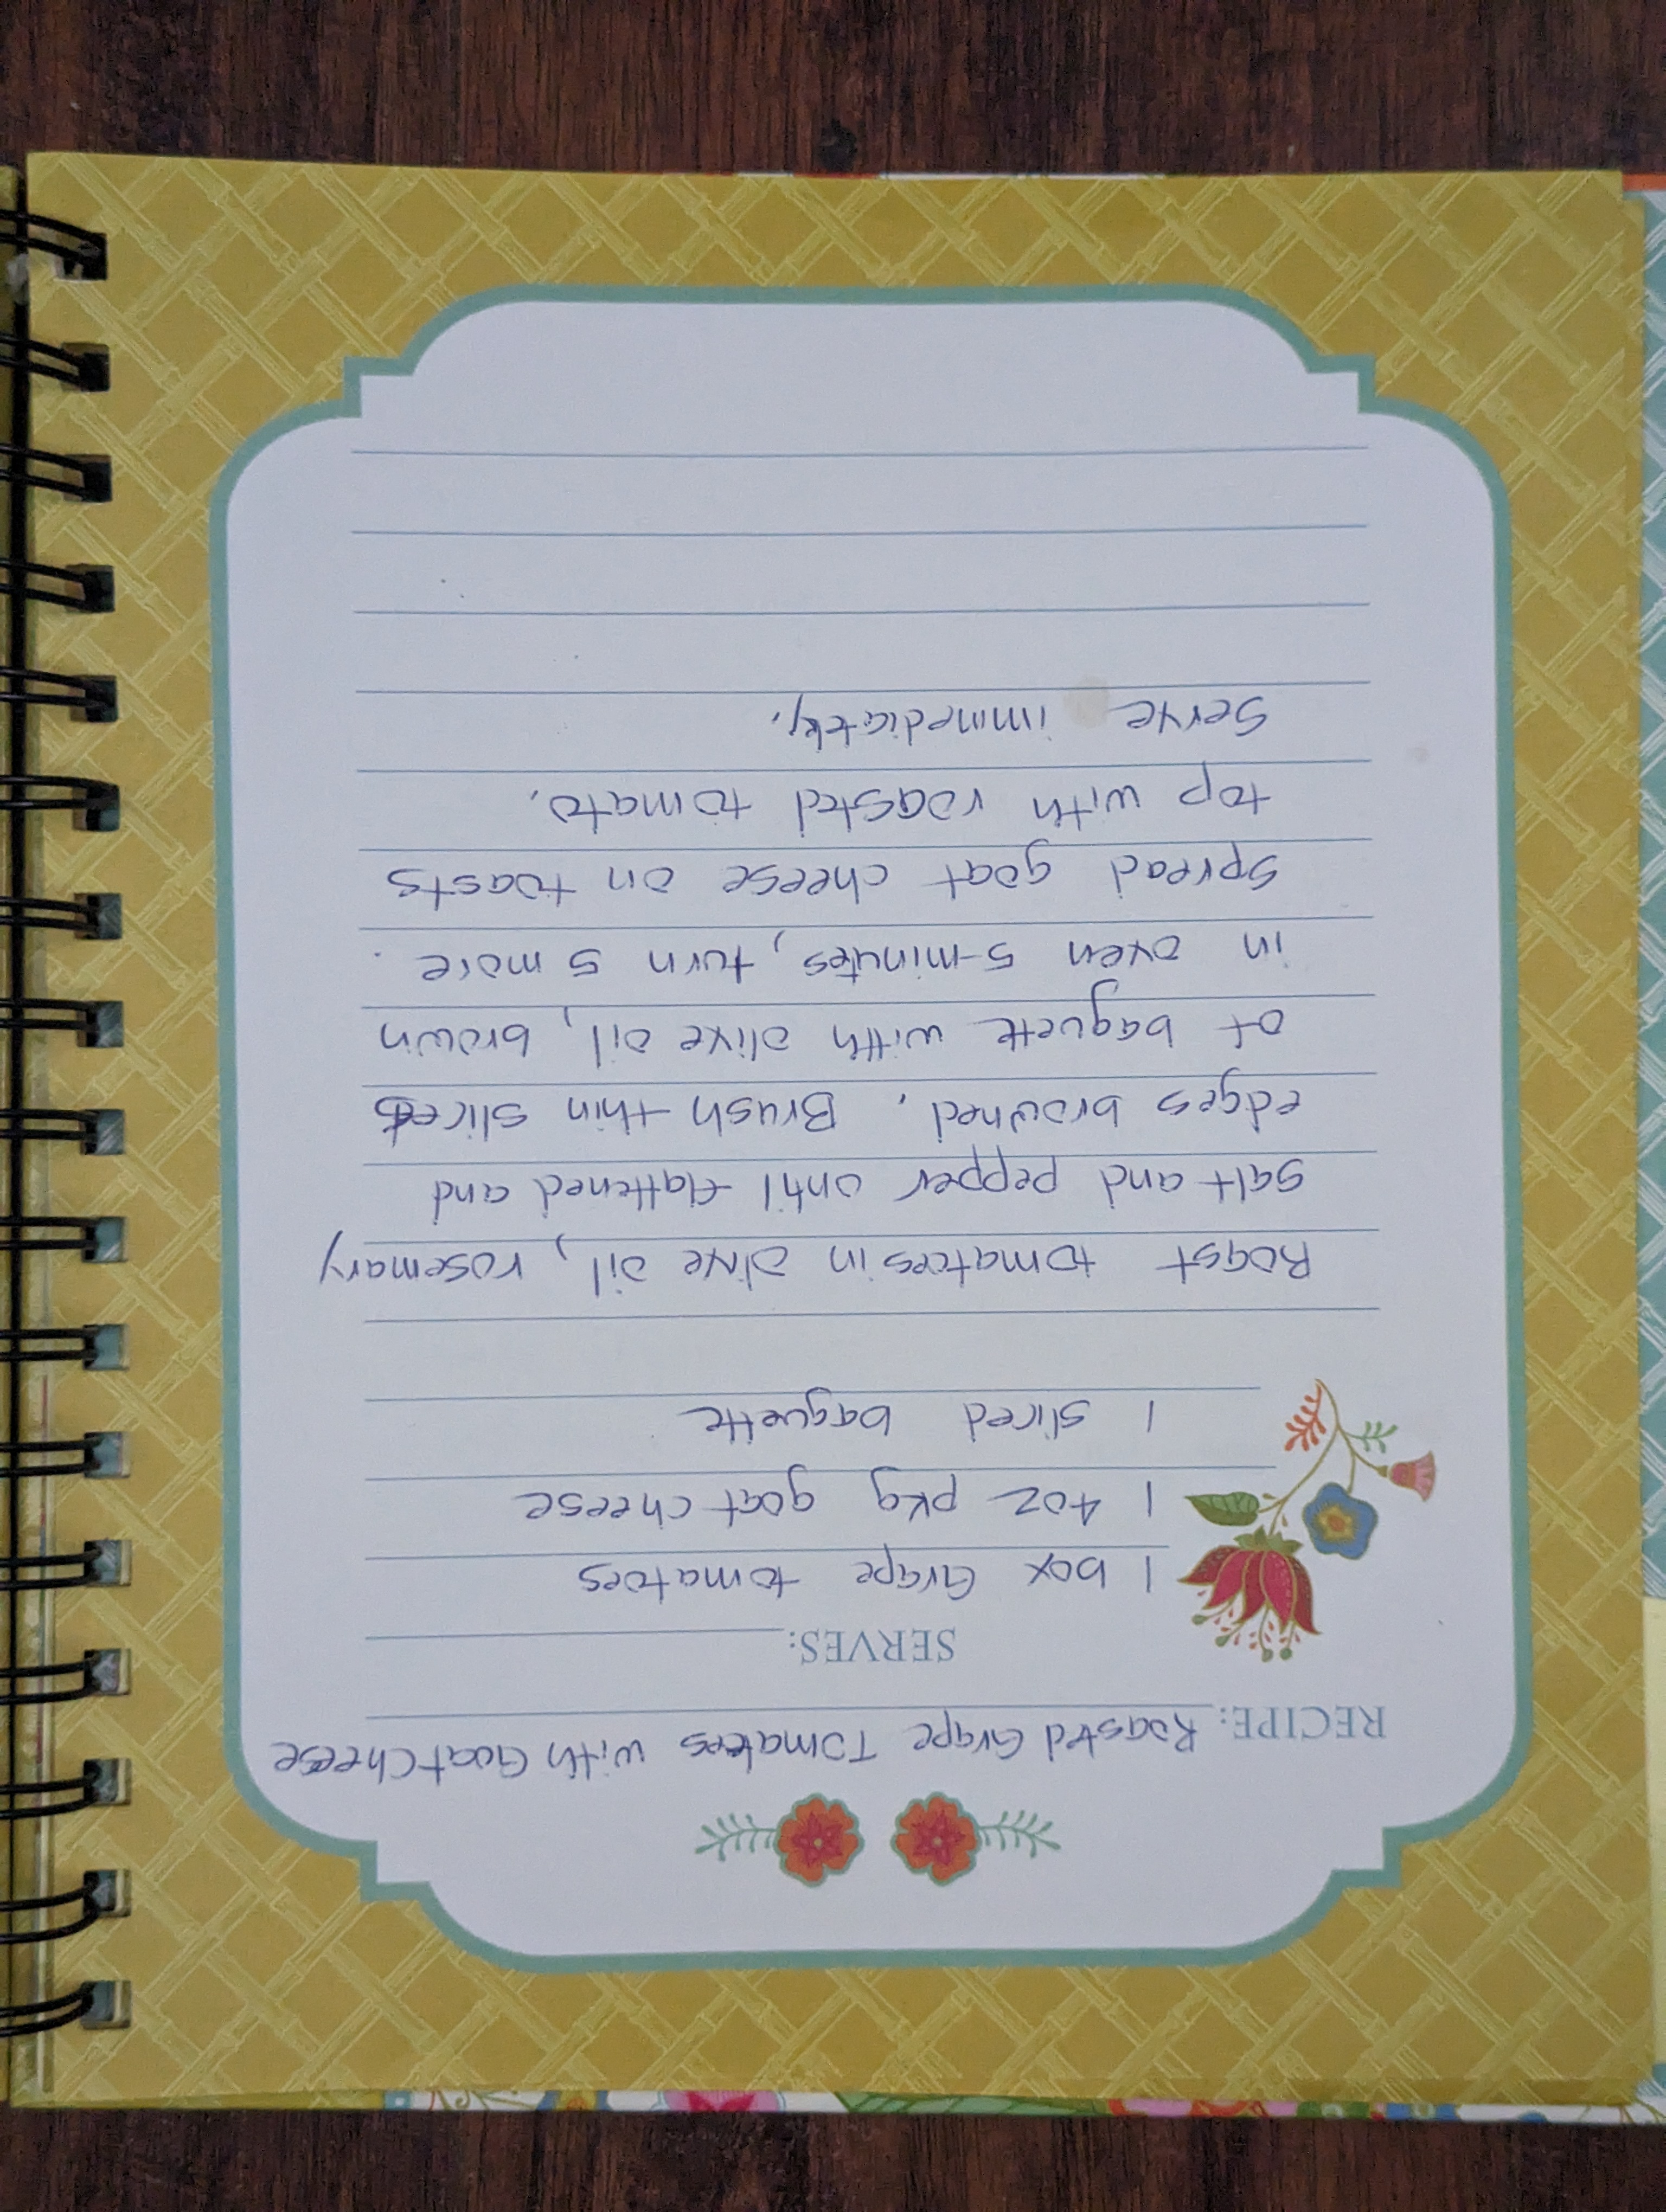 RECIPE: Roasted Grape Tomatoes with Goat Cheese
SERVES:
1 box Grape tomatoes
1 4oz pkg goat cheese
1 sliced baguette
Roast tomatoes in olive oil, rosemary
salt and pepper until flattened and
edges browned. Brush thin slices
of baguette with olive oil, brown
in oven 5-minutes, turn 5 more.
Spread goat cheese on toasts
top with roasted tomato.
Serve immediately.